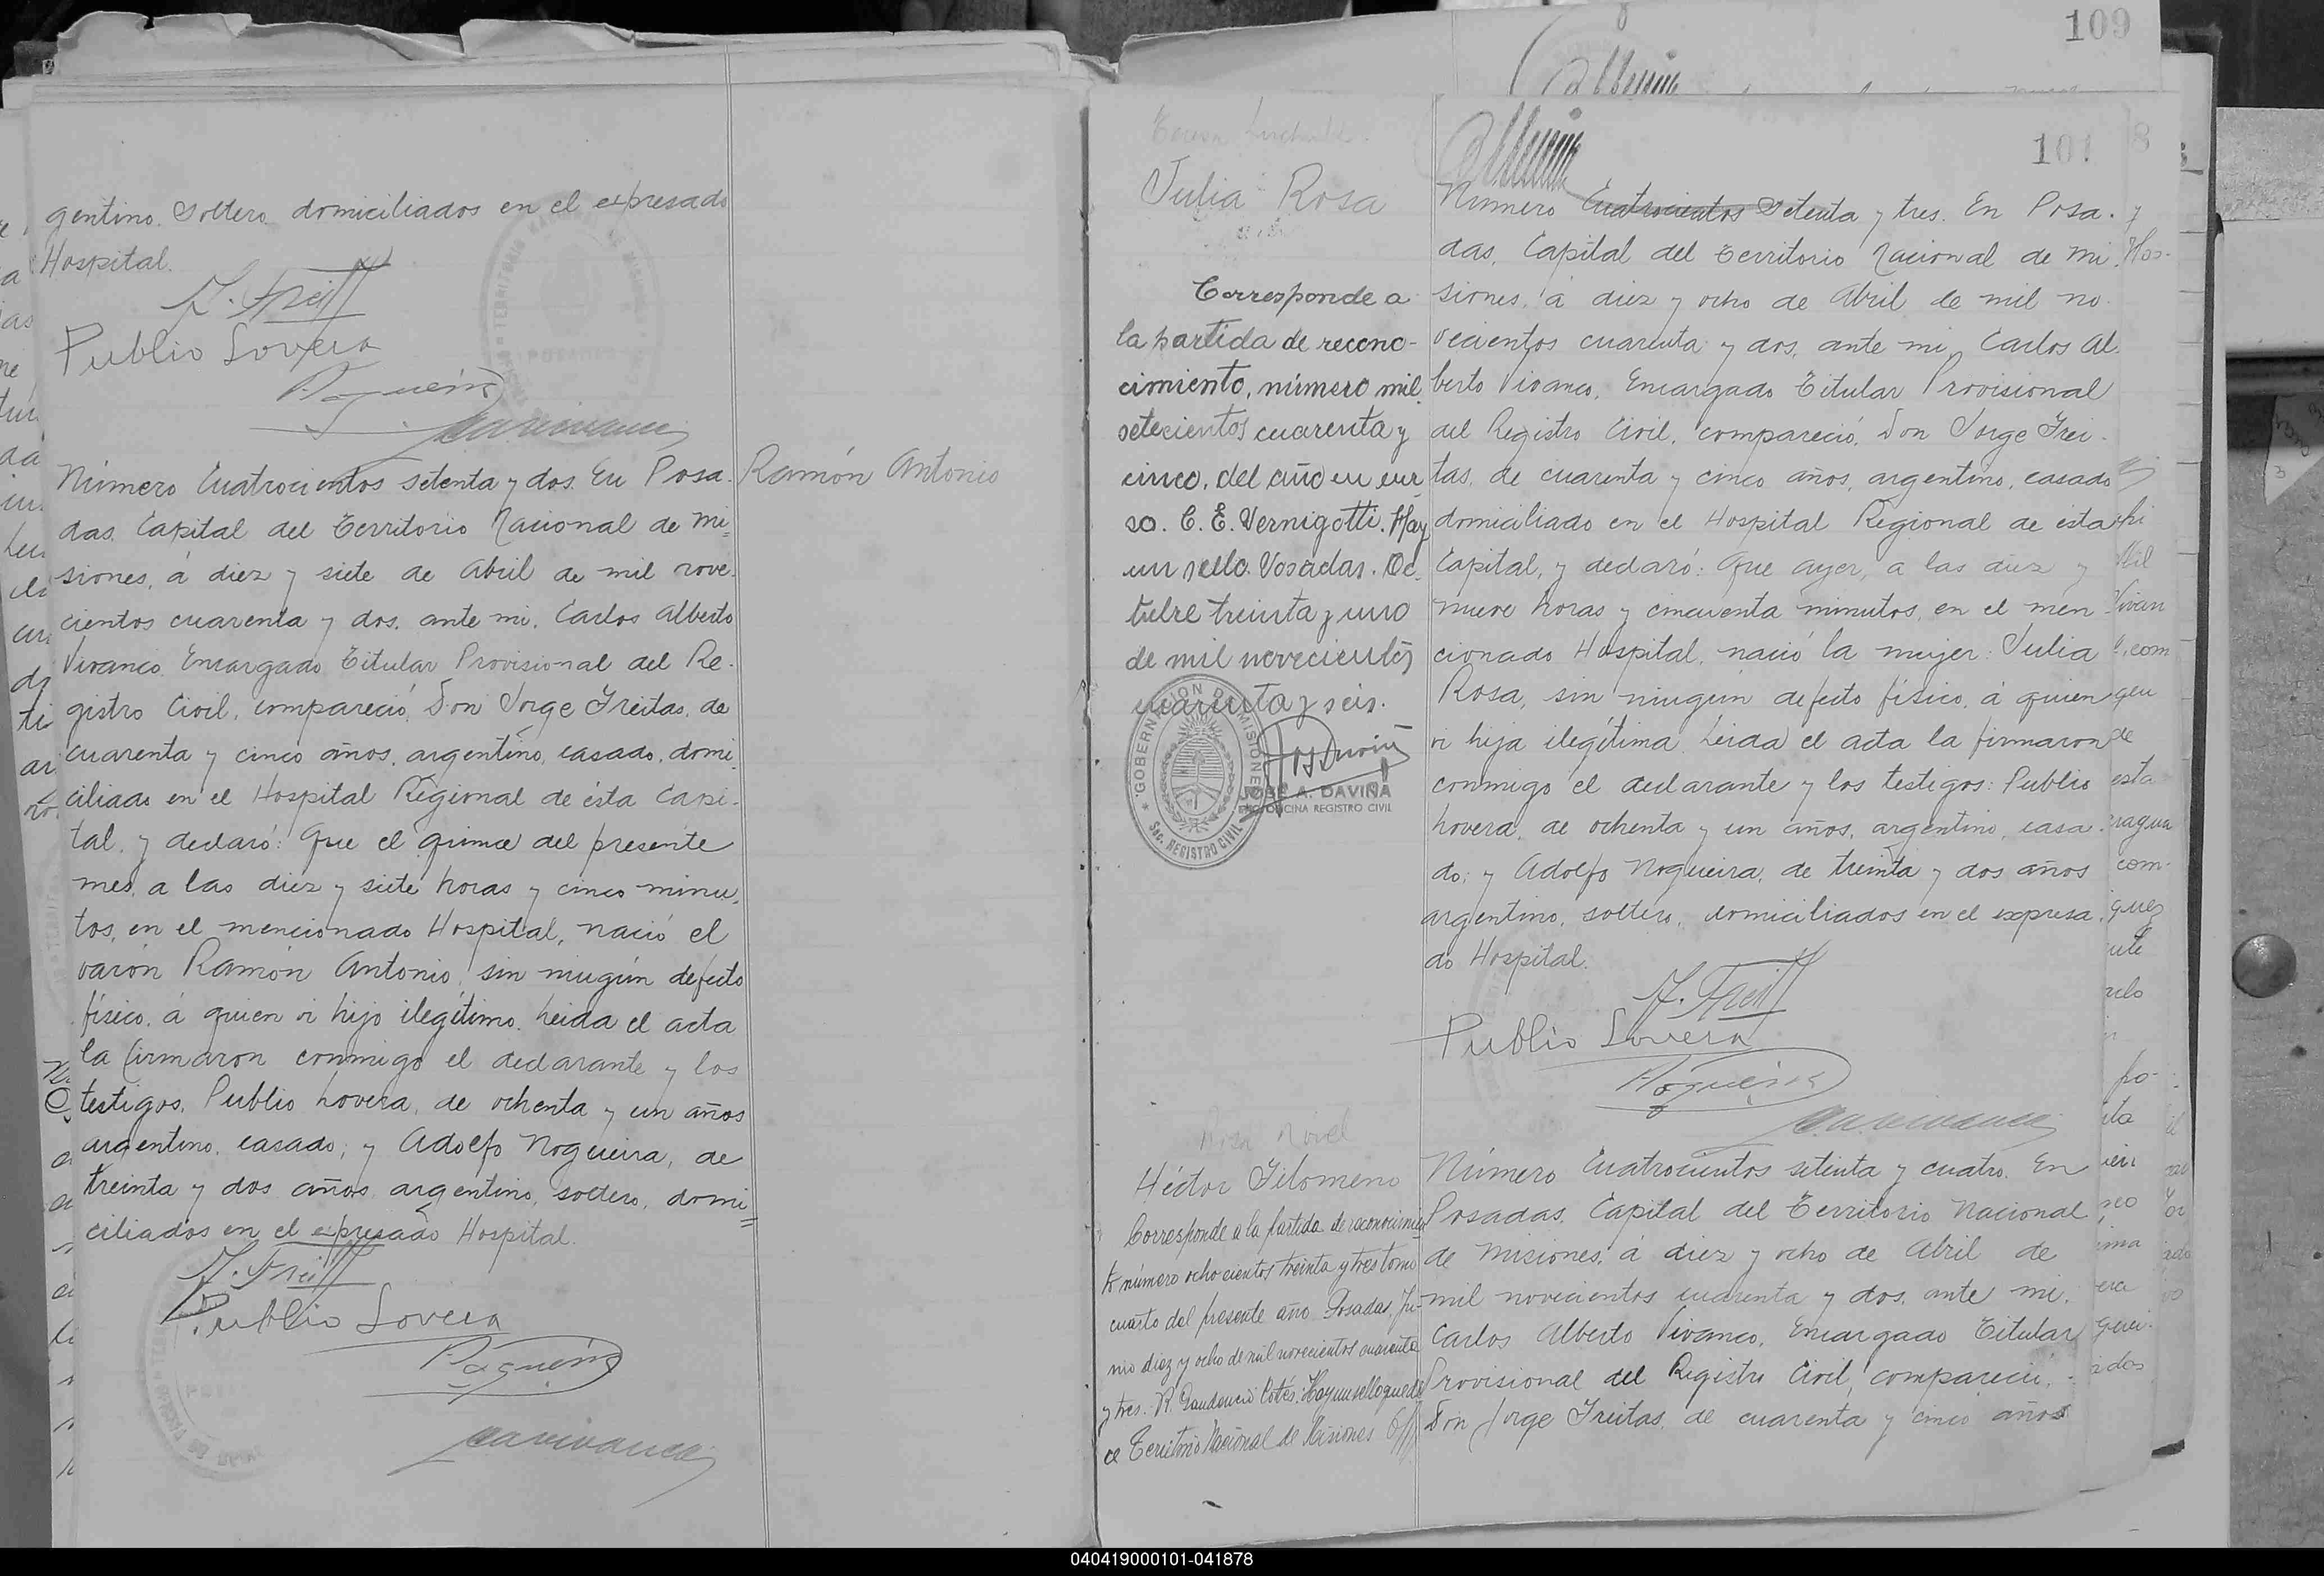 gentino. Soltero domiciliados en el expresado
Hospital.
J. Freitas
Publio Lovera
Nogueira
Número Cuatrocientos setenta y dos. En Posa-
das, Capital del Territorio Nacional de Mi=
siones, á diez y siete de Abril de mil nove-
cientos cuarenta y dos, ante mi, Carlos Alberto
Vivanco, Encargado Titular Provisional del Re-
gistro Civil, compareció, Don Jorge Freitas, de
cuarenta y cinco años, argentino, casado, domi-
ciliado en el Hospital Regional de ésta Capi-
tal, y declaró: Que el quince del presente
mes, a las diez y siete horas y cinco minu-
tos, en el mencionado Hospital, nació el
varón Ramón Antonio, sin ningún defecto
físico, á quien vi hijo ilegítimo. Leida el acta
la firmaron conmigo el declarante y los
testigos, Publio Lovera, de ochenta y un años
argentino, casado; y Adolfo Nogueira, de
treinta y dos años, argentino, soltero, domi=
ciliados en el expresado Hospital.
J. Freitas
Publio Lovera
Nogueira
Ramón Antonio
109
101
Julia Rosa
Corresponde a
la partida de recono-
cimiento, número mil
setecientos cuarenta y
cinco, del año en cur
so. C. E. Vernigotti. Hay
un sello. Posadas. Oc-
tubre treinta y uno
de mil novecientos
cuarenta y seis.
GOBERNACION DE MISIONES
SEC. REGISTRO CIVIL
JOSE A. DAVIÑA
OFICINA REGISTRO CIVIL
Número Cuatrocientos Setenta y tres. En Posa-
das, Capital del Territorio Nacional de Mi-
siones, á diez y ocho de Abril de mil no-
vecientos cuarenta y dos, ante mi, Carlos Al-
berto Vivanco, Encargado Titular Provisional
del Registro Civil, compareció, Don Jorge Frei-
tas, de cuarenta y cinco años, argentino, casado
domiciliado en el Hospital Regional de ésta
Capital, y declaró: Que ayer, a las diez y
nueve horas y cincuenta minutos, en el men
cionado Hospital, nació la mujer: Julia
Rosa, sin ningún defecto físico, á quien
vi hija ilegítima. Leida el acta la firmaron
conmigo el declarante y los testigos: Publio
Lovera, de ochenta y un años, argentino, casa-
do; y Adolfo Nogueira, de treinta y dos años
argentino, soltero, domiciliados en el expresa-
do Hospital.
J. Freitas
Publio Lovera
Nogueira
Rosa Novel
Héctor Filomeno
Corresponde a la partida de reconocimien
to número ochocientos treinta y tres tomo
cuarto del presente año. Posadas, Ju-
nio diez y ocho de mil novecientos cuarenta
y tres. R. Gaudencio Cotés. Hay un sello que di
ce Territorio Nacional de Misiones
Número Cuatrocientos setenta y cuatro. En
Posadas, Capital del Territorio Nacional
de Misiones, á diez y ocho de Abril de
mil novecientos cuarenta y dos, ante mi,
Carlos Alberto Vivanco, Encargado Titular
Provisional del Registro Civil, compareció,
Don Jorge Freitas, de cuarenta y cinco años
040419000101-041878